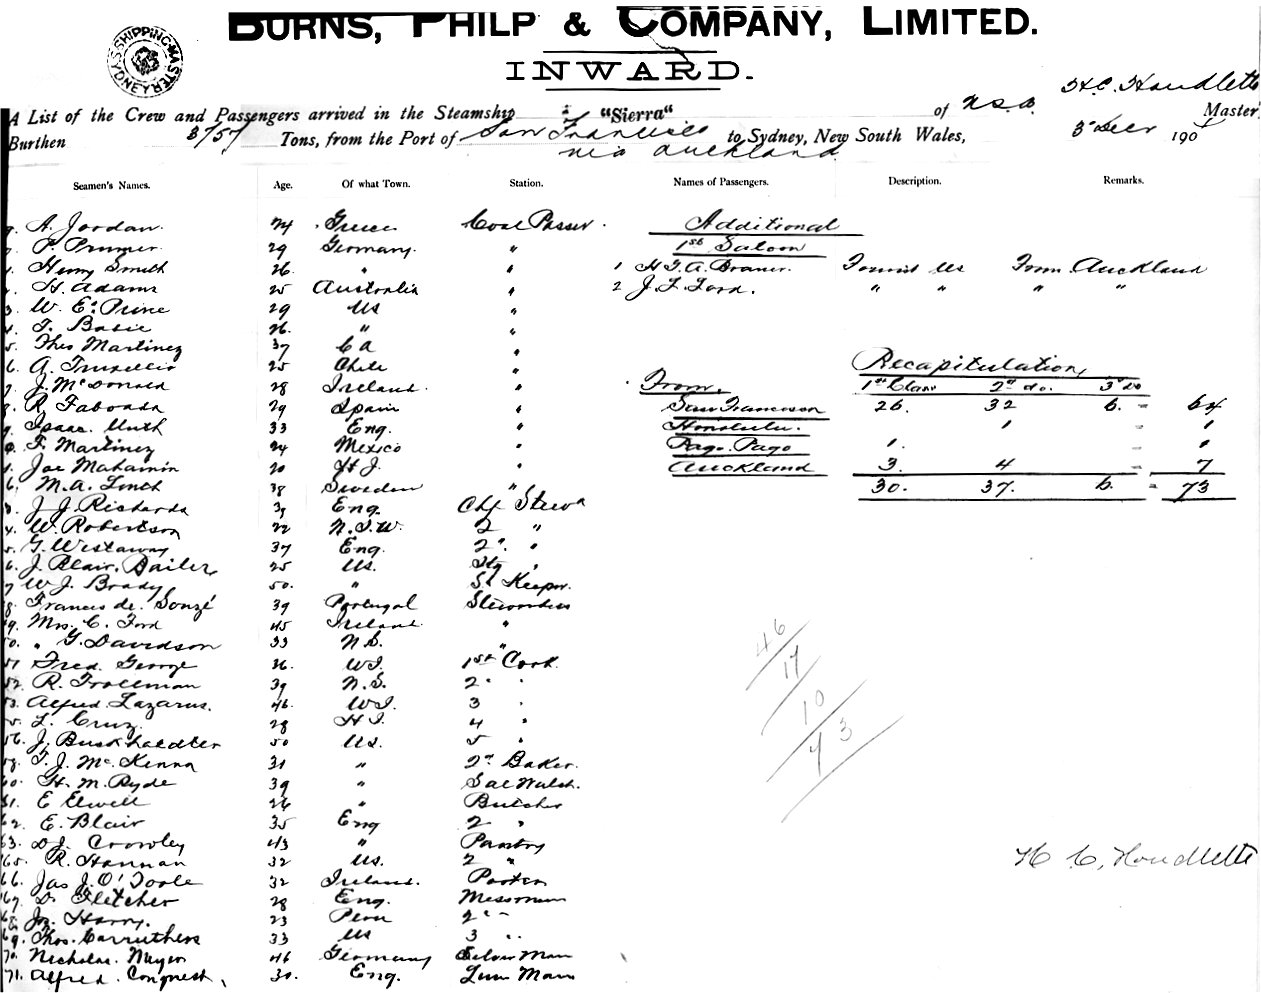 BURNS, PHILP & COMPANY, LIMITED.
INWARD.
SHIPPING MASTER SYDNEY
H.C. Houdlette
A List of the Crew and Passengers arrived in the Steamship "Sierra" of U.S.A. Master
Burthen 3757 Tons, from the Port of San Francisco to Sydney, New South Wales, 3 Decr 190
via Auckland
Seamen's Names. Age. Of what Town. Station. Names of Passengers. Description. Remarks.
A. Jordan 24 Greece Coal Passer
29 Germany "
Henry Smith 26 " "
H. Adams 25 Australia "
W. E. Prine 29 US "
26 " "
Theo Martinez 37 "
A. Truxillio 25 Chile "
J. McDonald 28 Ireland "
R. Taboada 29 Spain "
Isaac Muth 33 Eng. "
F. Martinez 24 Mexico "
Joe Mahamin 20 H.I. "
M. A. Lindt 38 Sweden "
J. J. Richards Eng. Chf Stewd
W. Robertson 22 N.S.W. 2 "
G. Westaway 37 Eng. 2d "
J. Blair Bailer 25 US. Stg "
W J. Brady 50. " St Keeper.
Francis de Souze 39 Portugal Stewardess
Mrs. C. Ford 45 Ireland "
" G. Davidson 33 N.S. "
51 Fred. George W.I. 1st Cook
52 R. Trolleman 39 N.S. 2 "
53. Alfred Lazarus. 46. W.I. 3 "
55. L. Cruz 28 H I. 4 "
56. J. Buskhaedter 50 US. 5 "
58. T. J. McKenna 31 " 2d Baker.
60. H. M. Ryde 39 " Sal Watch.
61. E Elwell 26 " Butcher
62. E. Blair 35 Eng 2 "
63. D J. Crowley 43 " Pantry
65. R. Hannan 32 US. 2 "
66. Jas J. O'Toole 32 Ireland. Porter
67. D. Fletcher 28 Eng. Messman
68. Jn. Harry. 23 Peru 2 "
69. Thos. Carruthers 33 US 3 "
70. Nicholas Mayer 46 Germany Silver Man
71. Alfred Conquest 30. Eng. Linn Man
Additional
1st Saloon
1 H. F. A. Braner. Tourist US From Auckland
2 J. F. Ford. " " " "
Recapitulation
From. 1st Class 2d do. 3d do
San Francisco 26. 32 6. = 64
Honolulu. 1 1
Pago Pago 1. 1
Auckland 3. 4 = 7
30. 37. 6. = 73
46
17
10
73
H. C. Houdlette